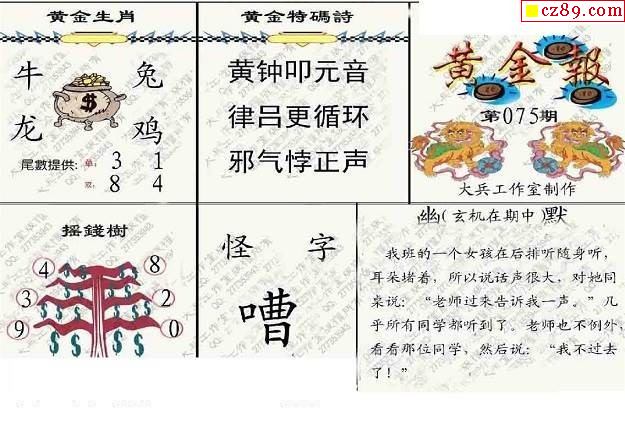 cz89.com
黄金生肖
牛 兔
龙 鸡
$
尾數提供: 单: 3 1
双: 8 4
黄金特碼詩
黄钟叩元音
律吕更循环
邪气悖正声
黄金報
第075期
大兵工作室制作
摇錢樹
4 8
3 2
9 0
怪 字
嘈
幽(玄机在期中)默
我班的一个女孩在后排听随身听，
耳朵堵着，所以说话声很大，对她同
桌说：“老师过来告诉我一声。”几
乎所有同学都听到了。老师也不例外，
看看那位同学，然后说：“我不过去
了！”